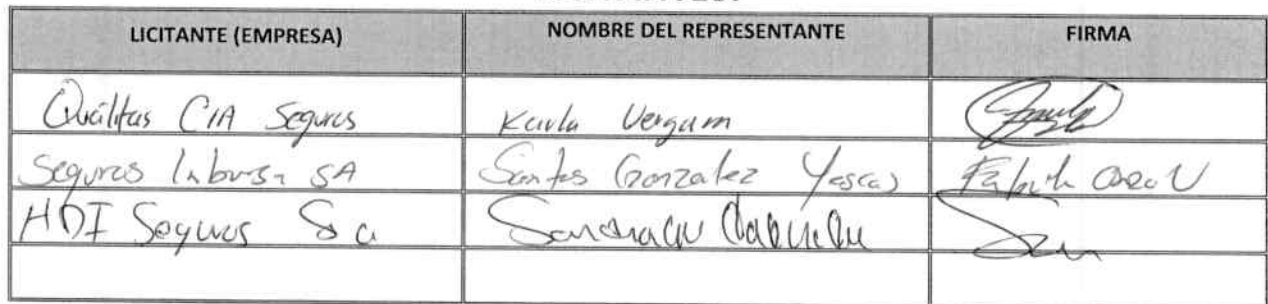 LICITANTE (EMPRESA) NOMBRE DEL REPRESENTANTE FIRMA
Quálitas CIA Seguros Karla Vergara
Seguros Inbursa SA Santos Gonzalez Yescas
HDI Seguros Sa